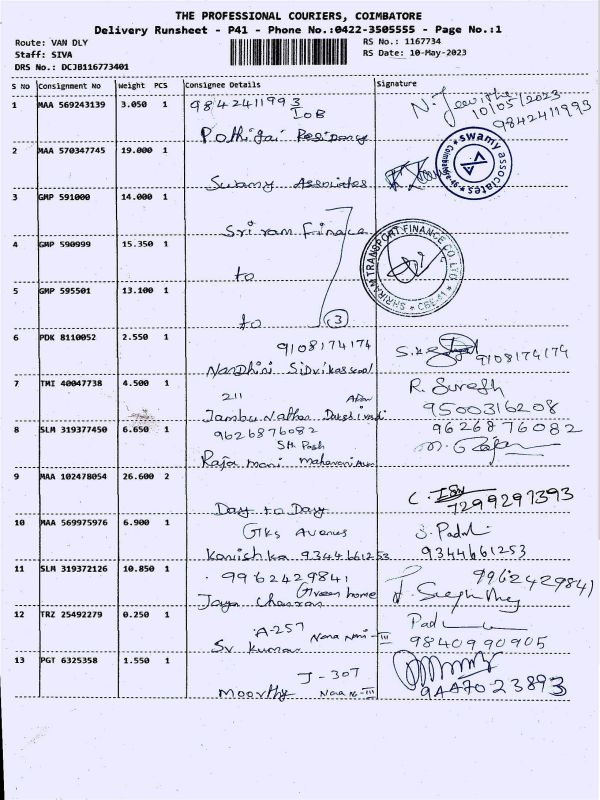 THE PROFESSIONAL COURIERS, COIMBATORE
Delivery Runsheet - P41 - Phone No.:0422-3505555 - Page No.:1
Route: VAN DLY
RS No.: 1167734
Staff: SIVA
RS Date: 10-May-2023
DRS No.: DCJB116773401
S No Consignment No Weight PCS Consignee Details Signature
1 MAA 569243139 3.050 1 9842411993
IOB
Pothigai
10/05/2023
9842411993
2 MAA 570347745 19.000 1
Swamy Associates
swamy associates
Coimbatore
3 GMP 591000 14.000 1
Sri ram Finace
4 GMP 590999 15.350 1
to
SHRIRAM TRANSPORT FINANCE CO. LTD.
5 GMP 595501 13.100 1
to 3
6 PDK 8110052 2.550 1 9108174174
Nandhini
9108174174
7 TMI 40047738 4.500 1 211
Jambu Nathan
R. Suresh
9500316208
8 SLM 319377450 6.650 1 9626876082
Raja mani
9626876082
9 MAA 102478054 26.600 2
Day to Day
7299297393
10 MAA 569975976 6.900 1 GKS Avenue
Kanishka 9344661253
9344661253
11 SLM 319372126 10.850 1 9962429841
Green home
Jaya
9962429841
12 TRZ 25492279 0.250 1 A-257
Sv kumar Nana Nani-III
9840990905
13 PGT 6325358 1.550 1 J-307
Moorthy Nana N-III